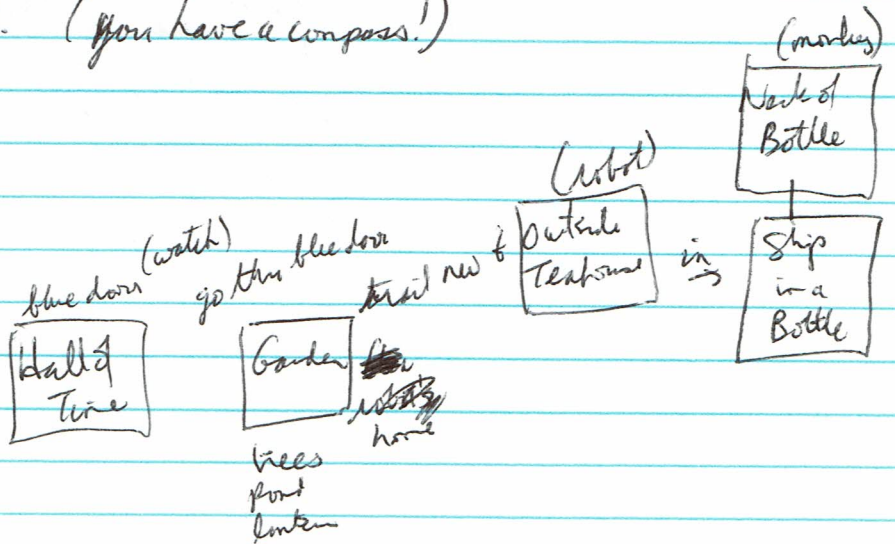 (you have a compass!)
(monkey)
Neck of
Bottle
(robot)
Outside
Teahouse
in →
Ship
in a
Bottle
blue door
(watch)
go thru blue door
trail
Hall of
Time
Garden
home
trees
pond
lantern